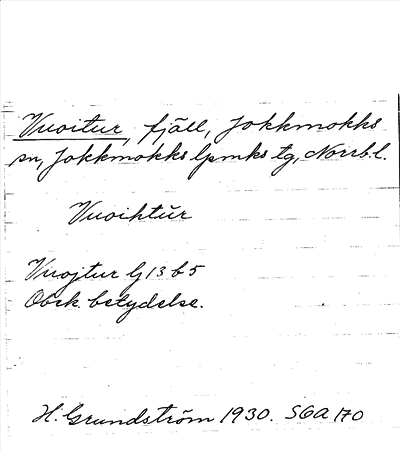 Vuoitur, fjäll, Jokkmokks
sn, Jokkmokks lpmks tg, Norrb.l.
Vuoihtŭr
Vuojtur lj 13 b 5
Obek. betydelse.
H. Grundström 1930. SGA 170